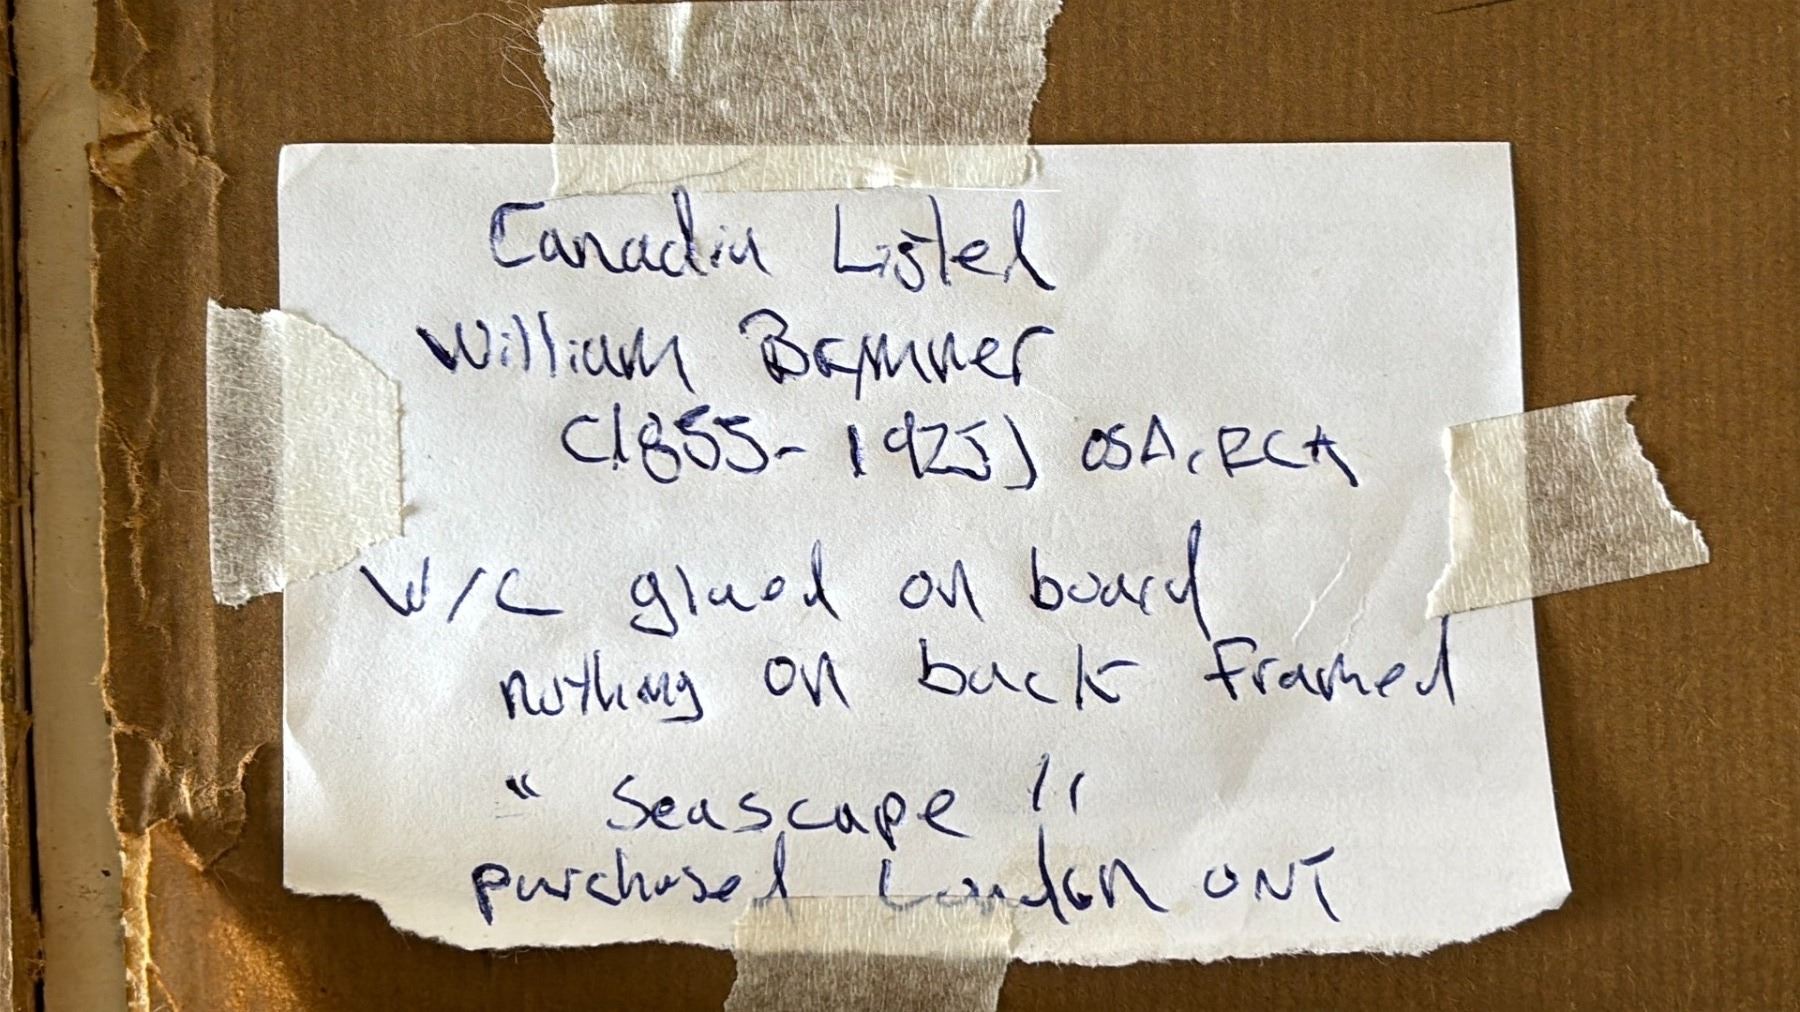 Canadin Listed
William Bamner
(1855-1925) OSA, RCA
W/C glued on board
nothing on back Framed
"Seascape"
purchased London ONT